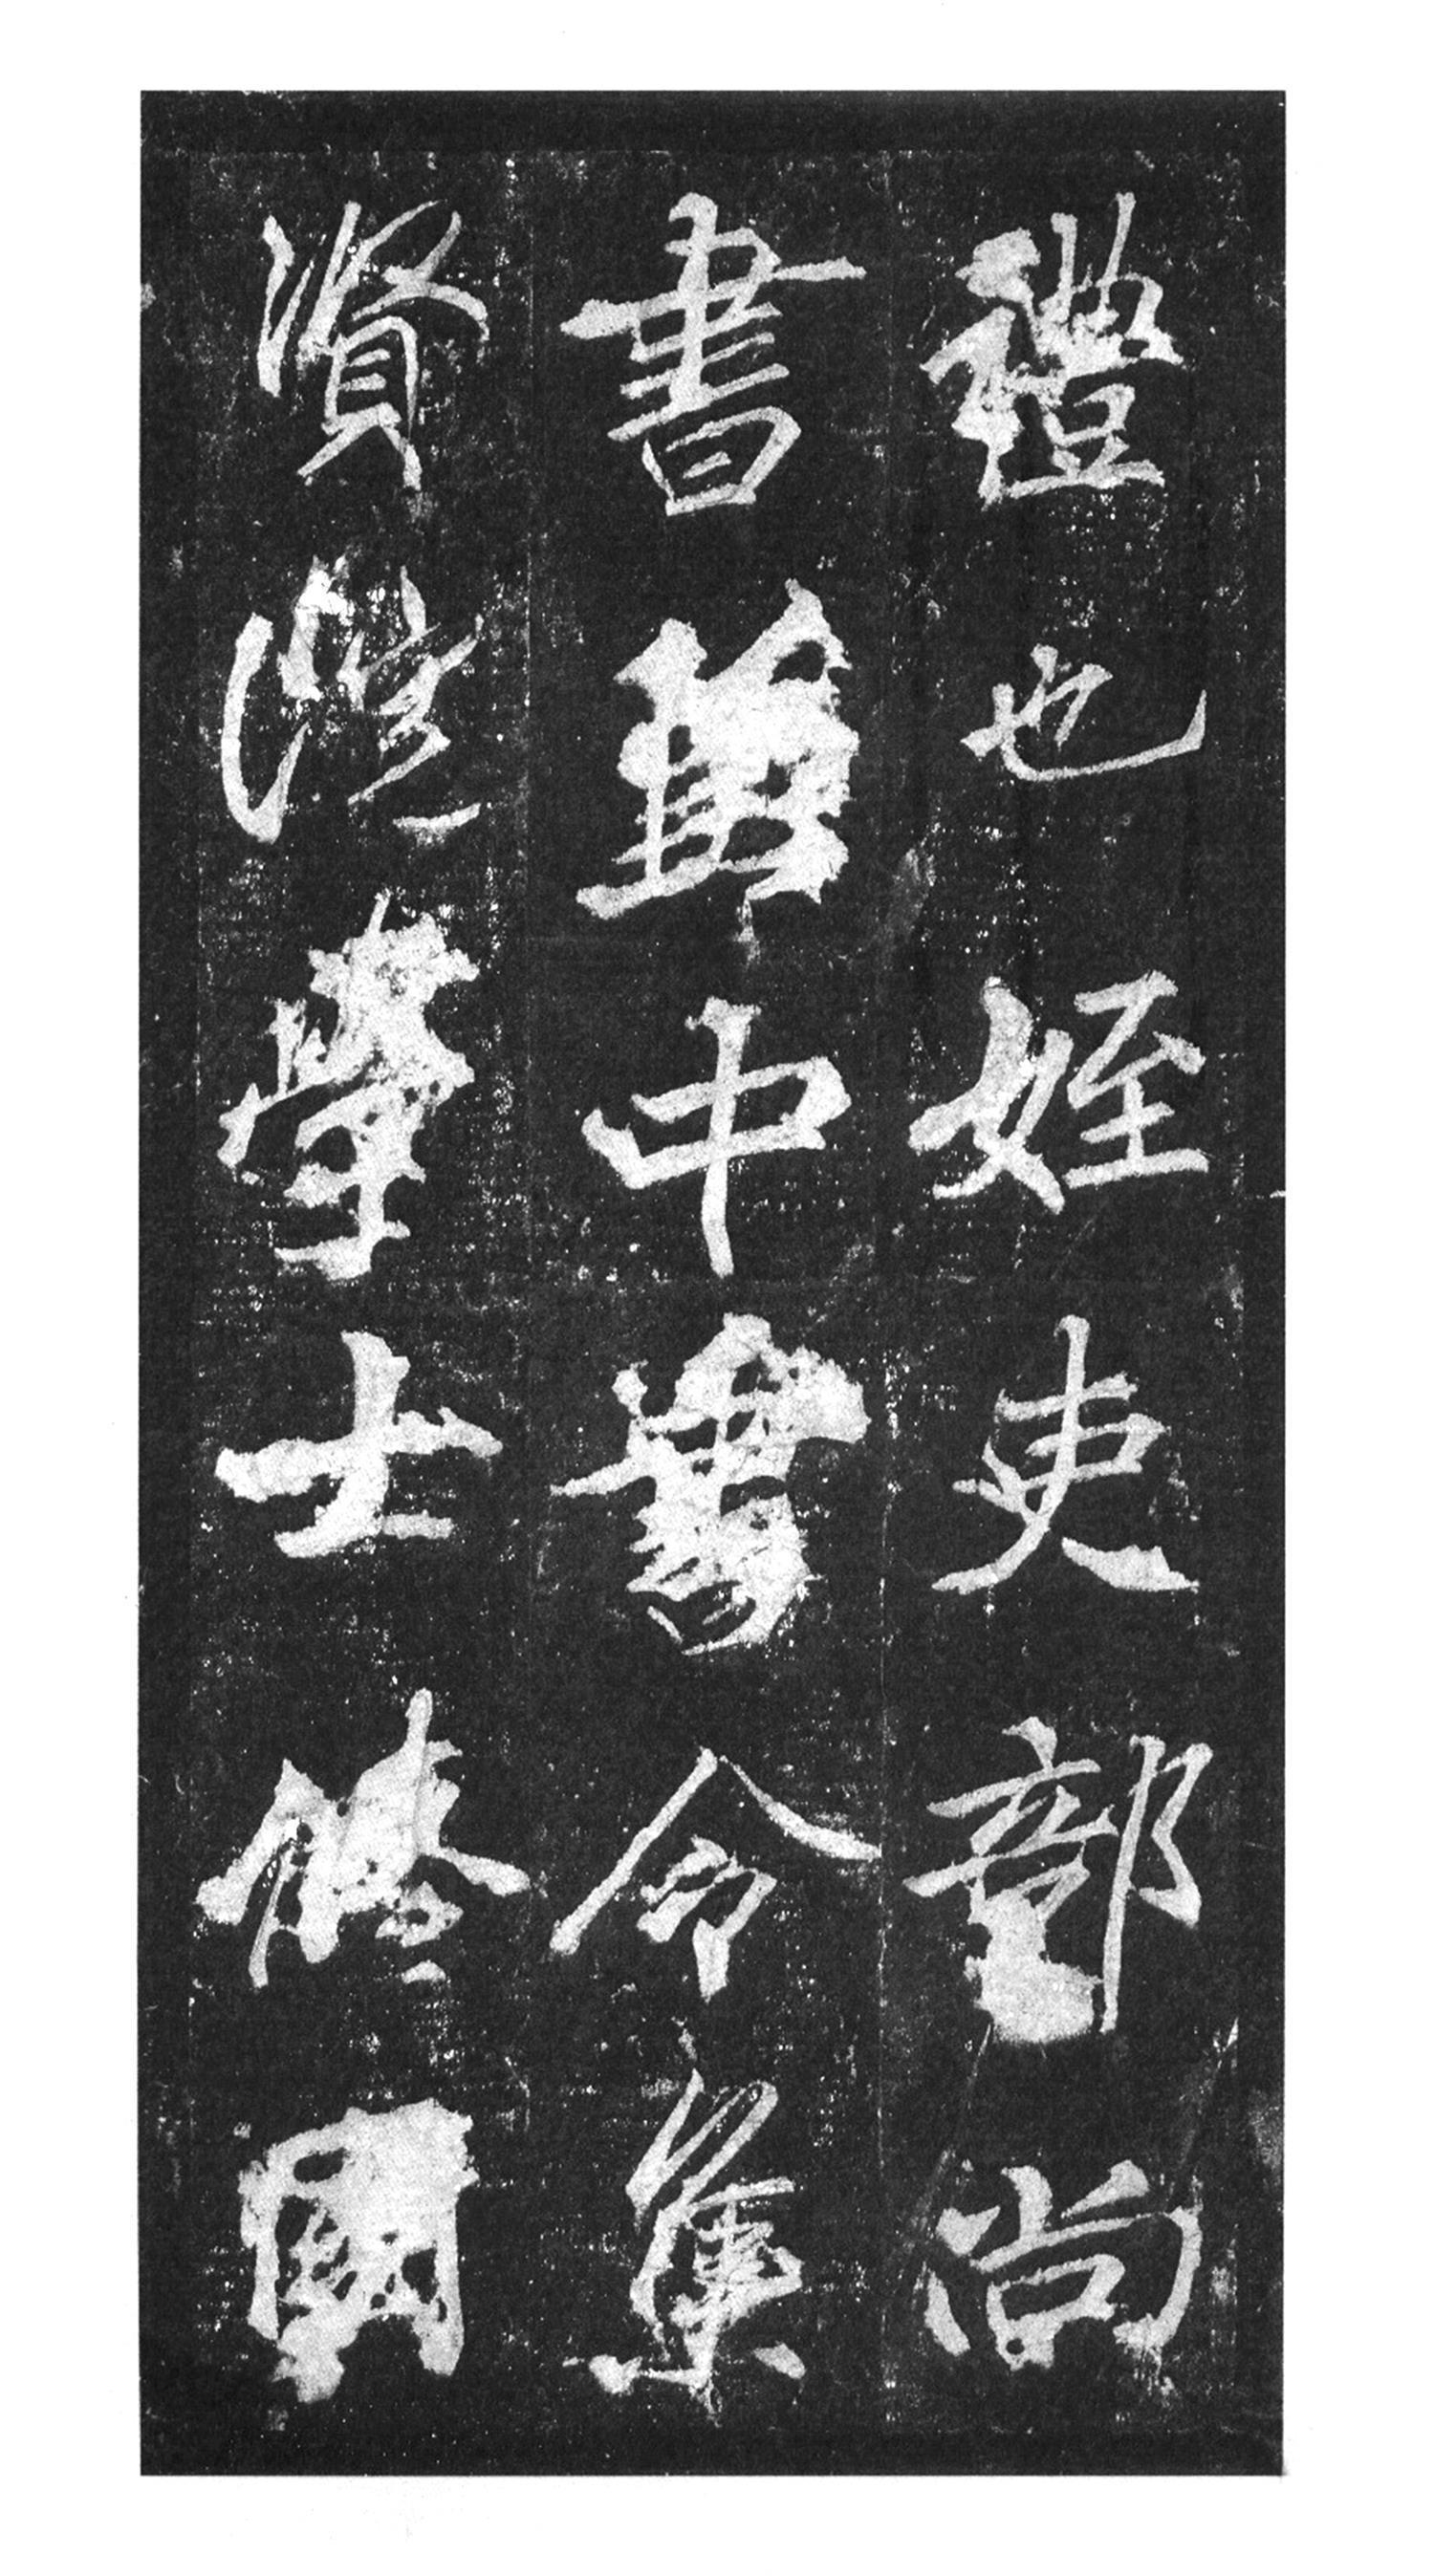 禮也姪吏部尚
書兼中書令集
賢院學士脩國